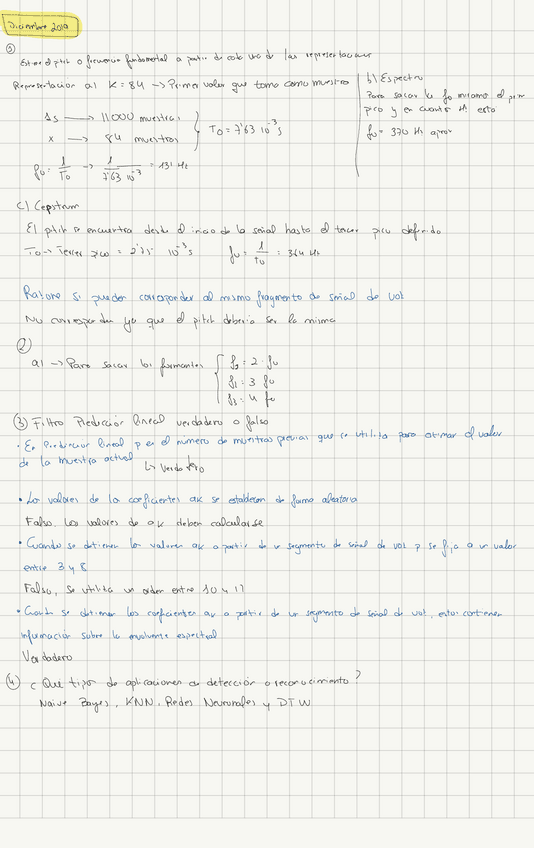 Diciembre 2019
①
Estime el pitch o frecuencia fundamental a partir de cada una de las representaciones
Representacion a) K = 84 → Primer valor que tomo como muestra
1s → 11000 muestras
x → 84 muestras
T0 = 7'63 10^-3 s
f0 = 1/T0 → 1/7'63 10^-3 = 131 Hz
b) Espectro
Para sacar la f0 miramos el primer
pico y en cuantos Hz esta
f0 = 370 Hz aprox
c) Cepstrum
El pitch se encuentra desde el inicio de la señal hasta el tercer pico definido
T0 → Tercer pico = 2'75 10^-3 s f0 = 1/t0 = 364 Hz
Razone si pueden corresponder al mismo fragmento de señal de voz
No corresponden ya que el pitch deberia ser la misma
②
a) → Para sacar los formantes
f2 = 2 · f0
f1 = 3 f0
f3 = 4 f0
③ Filtro Predicción lineal verdadero o falso
• En Predicción lineal p es el número de muestras previas que se utiliza para estimar el valor
de la muestra actual
↳ Verdadero
• Los valores de los coeficientes ak se establecen de forma aleatoria
Falso, los valores de ak deben calcularse
• Cuando se obtienen los valores ak a partir de un segmento de señal de voz p se fija a un valor
entre 3 y 8
Falso, se utiliza un orden entre 10 y
• Cuando se obtienen los coeficientes ak a partir de un segmento de señal de voz, estos contienen
información sobre la envolvente espectral
Verdadero
④ ¿Que tipo de aplicaciones de detección o reconocimiento?
Naive Bayes, KNN, Redes Neuronales y DTW